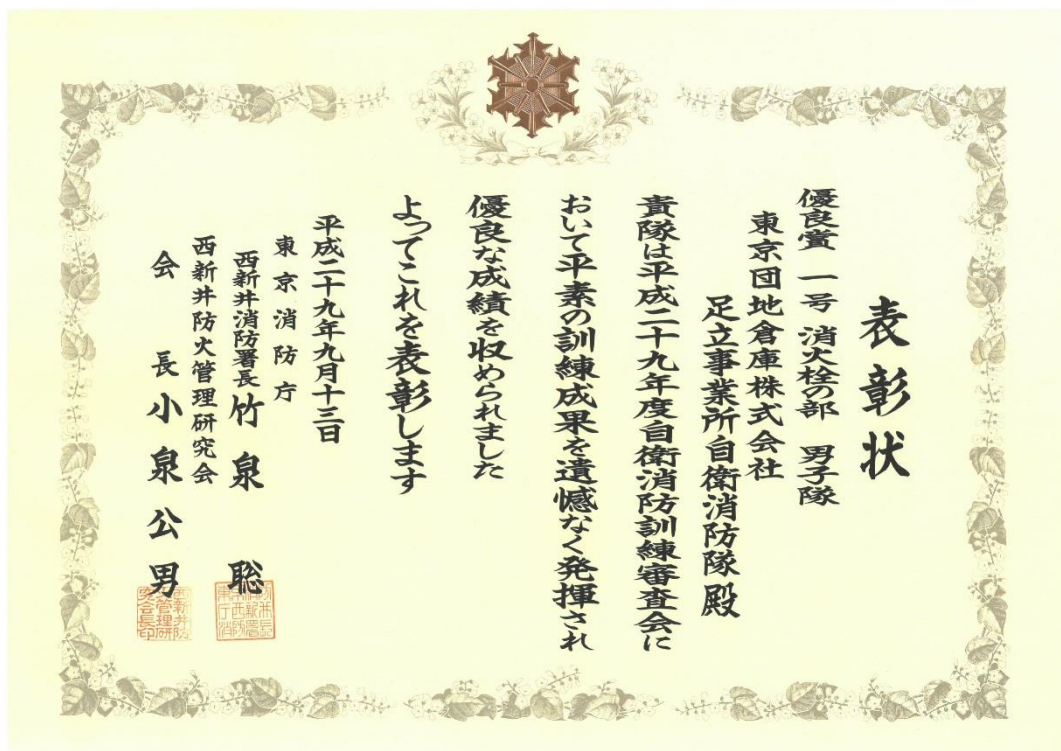 表彰状
優良賞 一号 消火栓の部 男子隊
東京団地倉庫株式会社
足立事業所自衛消防隊殿
貴隊は平成二十九年度自衛消防訓練審査会に
おいて平素の訓練成果を遺憾なく発揮され
優良な成績を収められました
よってこれを表彰します
平成二十九年九月十三日
東京消防庁
西新井消防署長 竹泉 聡
西新井防火管理研究会
会長 小泉公男